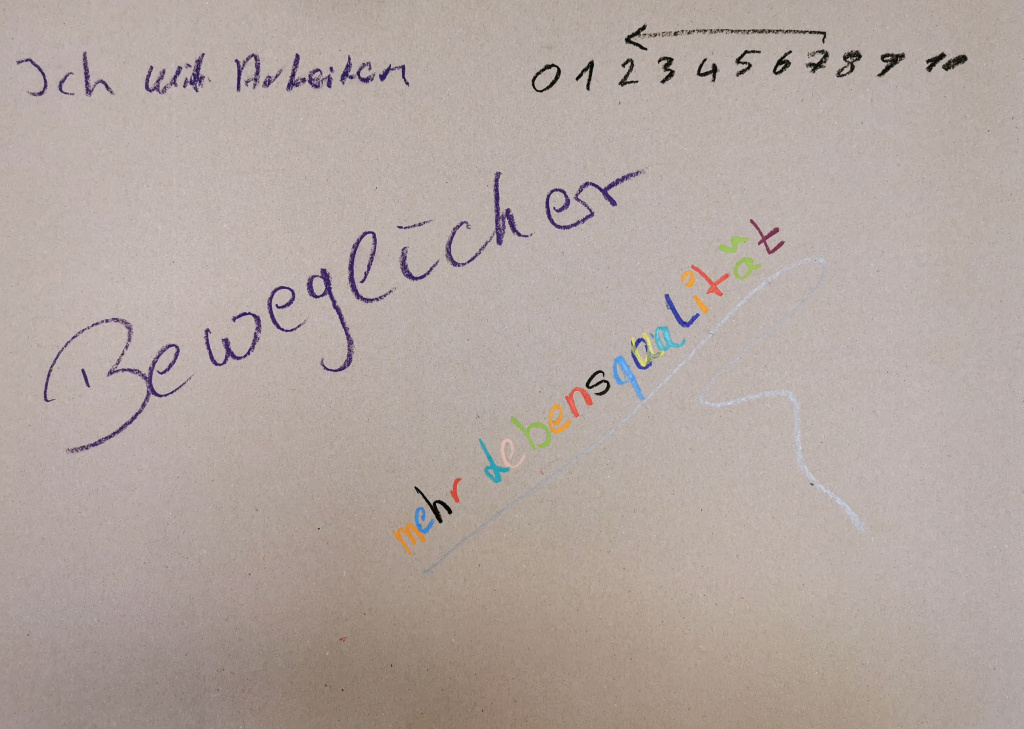 Ich will Arbeiten
0 1 2 3 4 5 6 7 8 9 10
Beweglicher
mehr Lebensqualität